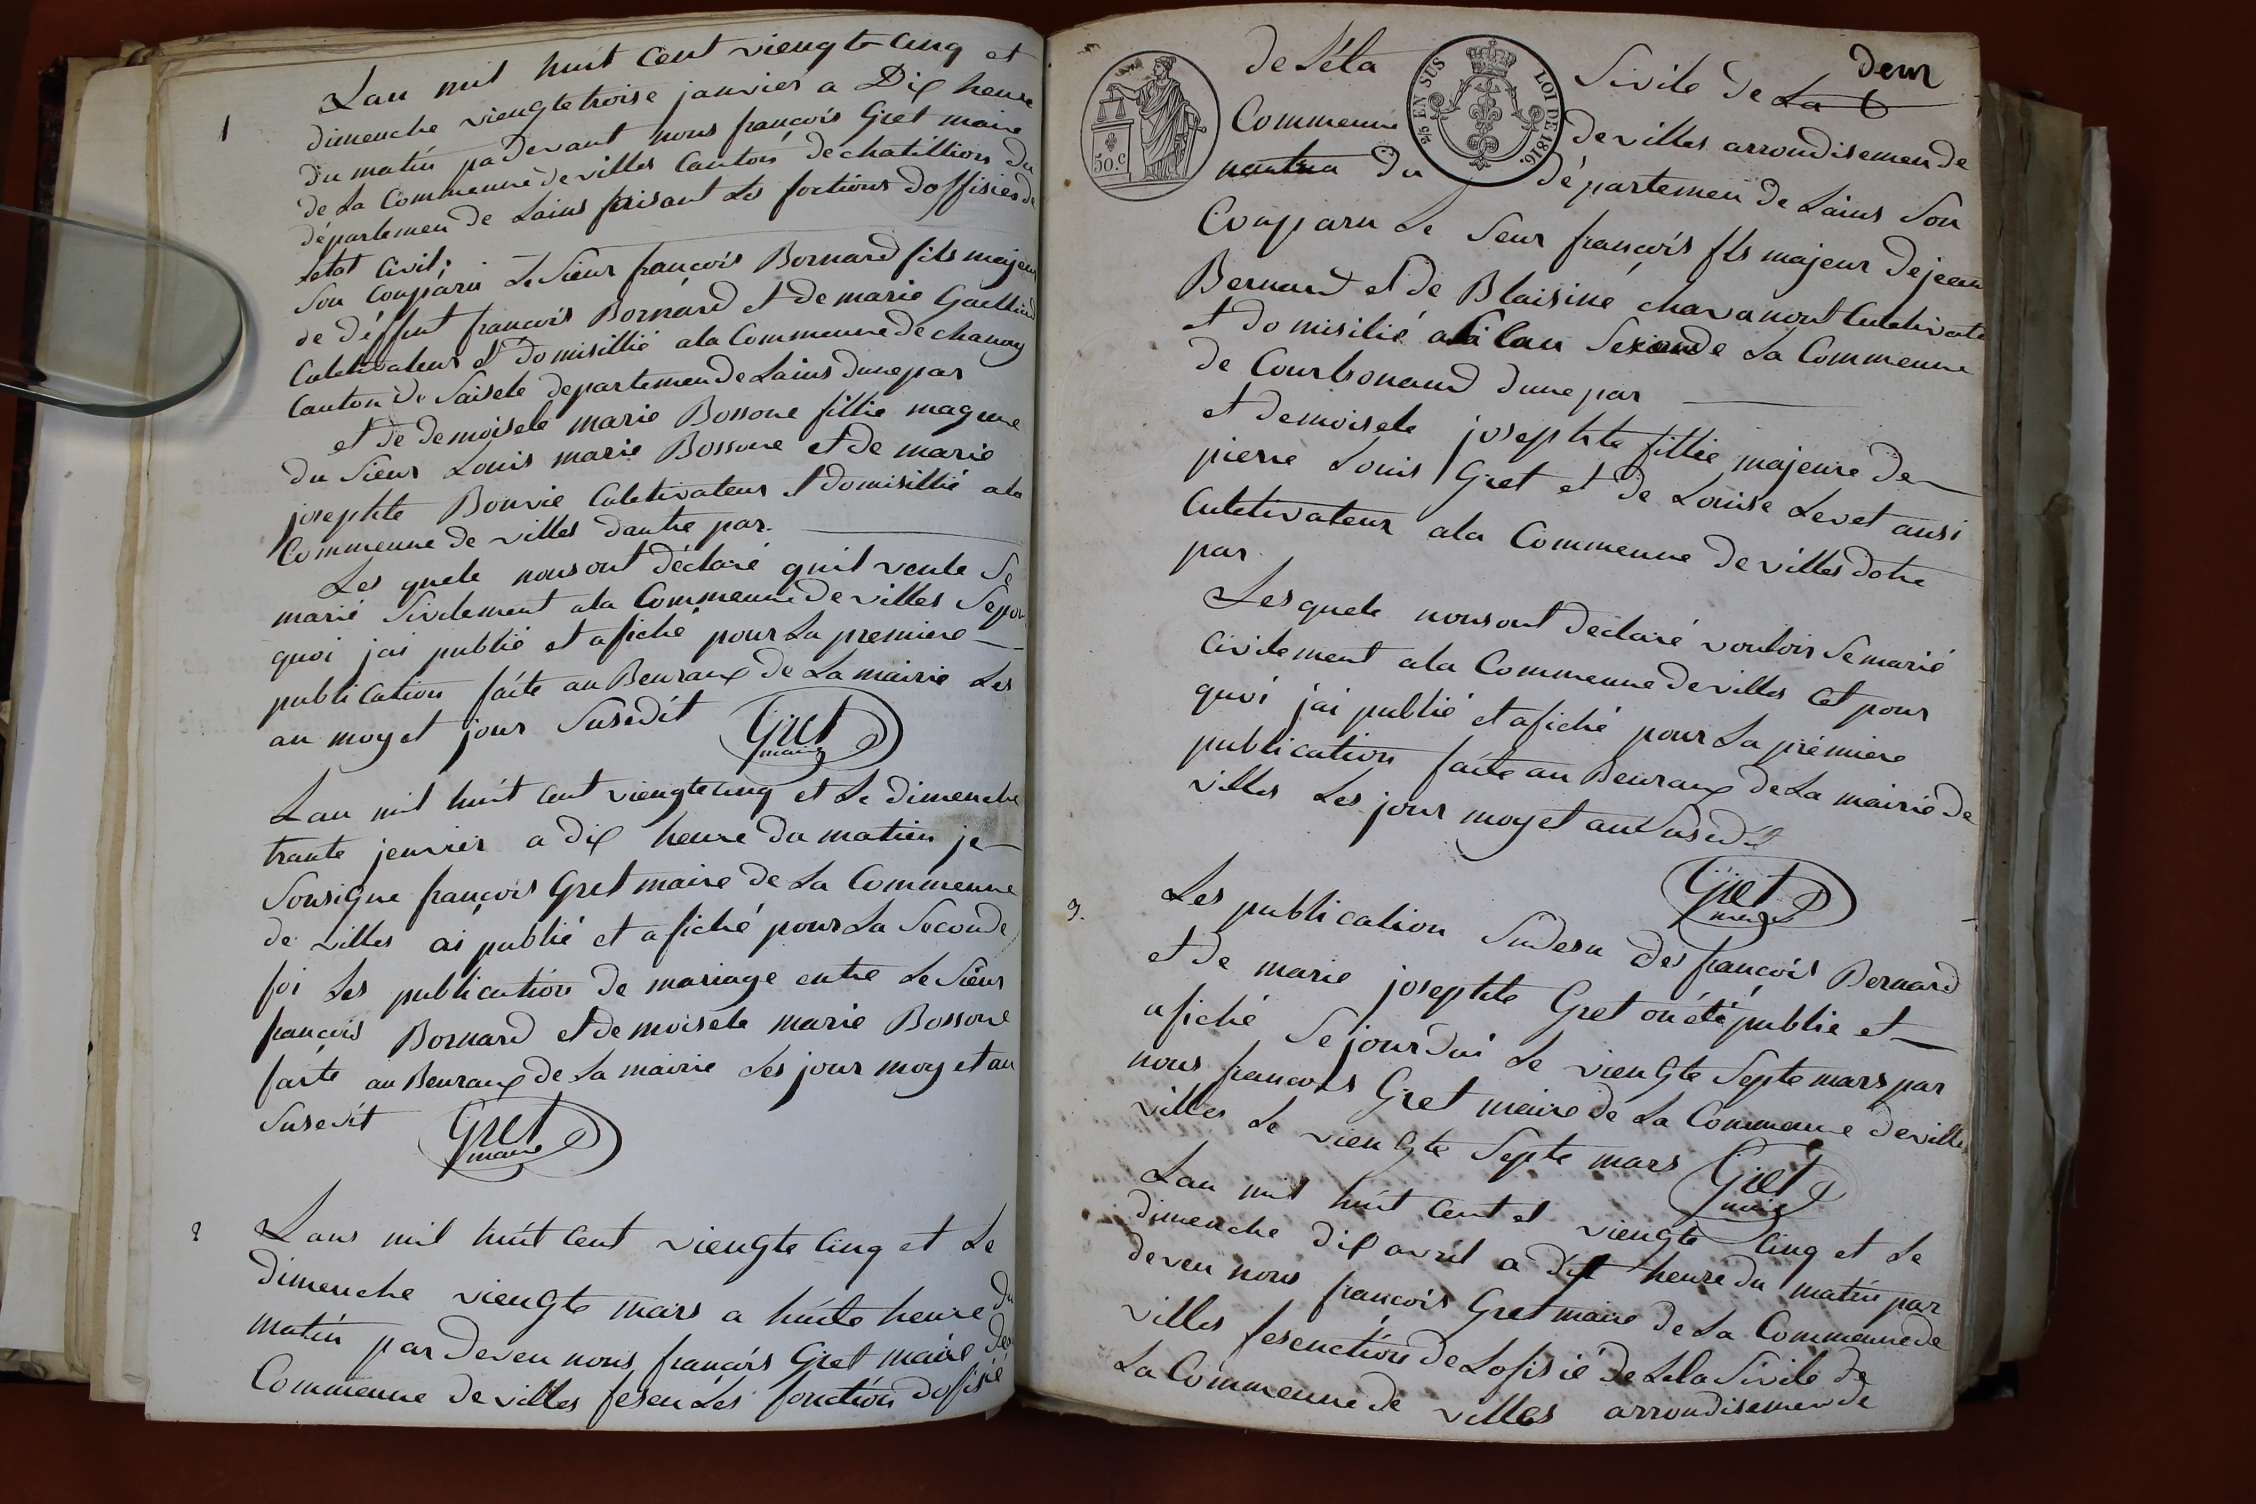 1
Lan mil huit Cent viengte Cinq et
dimenche viengtetroise janvier a Dix heure
du matin padevant nous françois Gret maire
de La Commeune de villes Canton de chatillion du
départemen de Lains faisant Les foctions doffisier de
Letat Civil.
Son Conparu Le Sieur françois Bornard fils majeur
de déffunt françois Bornard et de marie
Cultivateur et domisillié ala Commeune de chanay
Canton de Saisele departemen de Lains dune par
et de demoisele marie Bossone fillie mageure
du Sieur Louis marie Bossone et de marie
josephte Bouvié Cultivateur et domisillié ala
Commeune de villes dautre par.
Les quele nousont déclaré quil veule Se
marié Sivilement ala Commeune de villes
quoi jai publié et afiché pour La premiere
publication faite au Beuraux de La mairie Les
an moy et jour Susedit
Gret
maire
Lan mil huit Cent viengte cinq et Le dimenche
trante jenvier a dix heure du matien je
Sousigne françois Gret maire de La Commeune
de villes ai publié et afiché pour La Seconde
foi Les publication de mariage entre Le Sieur
françois Bornard et demoisele marie Bossone
faite au Beuraux de La mairie Les jour moy et an
Susedit
Gret
maire
2
Lans mil huit Cent viengte Cinq et Le
dimenche viengte mars a huite heure du
matin pardeven nous françois Gret maire de
Commeune de villes fesen Les fonction dofisié
deux
50.c
2/5 EN SUS
LOI DE 1816.
de Léta Sivile de La C
Commeune de villes arrondisemen de
nantua du départemen de Lains Son
Conparu Le Seur françois fls majeur de jean
Bernard et de Blaisine chavanont Cultivate
et domisilié a de La Commeune
de Courbonoud dune par
et demoisele josephte fillie majeure de
pierre Louis Gret et de Louise Levet ausi
Cultivateur ala Commeune de villes dotre
par
Lesquele nousont déclaré vouloir Semarié
Civilement ala Commeune de villes Et pour
quoi jai publié et afiché pour La prémiere
publication faite au Beuraux de La mairie de
villes Les jour moy et an Susedit
Gret
maire
3.
Les publication Sudesu des françois Bernard
et de marie josephte Gret on été publié et
afiché Sejourdui Le viengte Septe mars par
nous françois Gret maire de La Commeune deville
villes Le viengte Septe mars
Gret
maire
Lan mil huit Cent et viengte Cinq et Le
dimenche dix avril a dix heure du matin par
deven nous françois Gret maire de La Commeune de
villes fesenction de Lofisié de Léta Sivile de
La Commeune de villes arrondisemen de